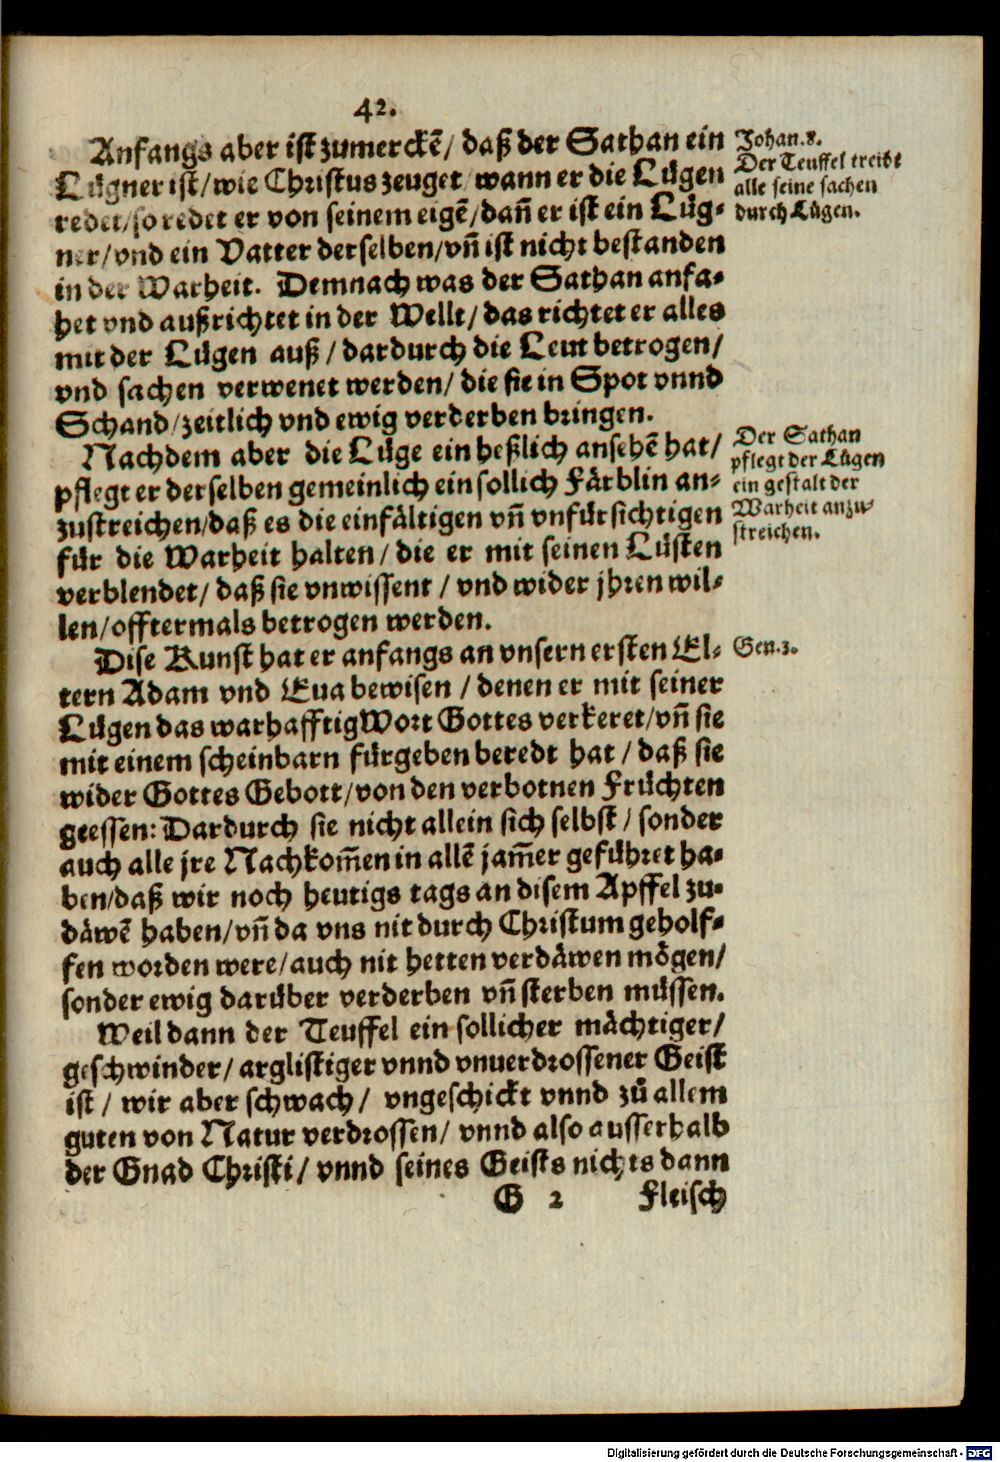 42.
Anfangs aber ist zumerckẽ/ daß der Sathan ein
Lügner ist/ wie Christus zeuget wann er die Lügen
redet/ so redet er von seinem eigẽ/ dañ er ist ein Lüg-
ner/ vnd ein Vatter derselben/ vñ ist nicht bestanden
in der Warheit. Demnach was der Sathan anfa-
het vnd außrichtet in der Wellt/ das richtet er alles
mit der Lügen auß/ dardurch die Leut betrogen/
vnd sachen verwenet werden/ die sie in Spot vnnd
Schand/ zeitlich vnd ewig verderben bringen.
Nachdem aber die Lüge ein heßlich ansehẽ hat/
pflegt er derselben gemeinlich ein sollich Färblin an-
zustreichen/ daß es die einfältigen vñ vnfürsichtigen
für die Warheit halten/ die er mit seinen Lüsten
verblendet/ daß sie vnwissent/ vnd wider jhren wil-
len/ offtermals betrogen werden.
Dise Kunst hat er anfangs an vnsern ersten El-
tern Adam vnd Eua bewisen/ denen er mit seiner
Lügen das warhafftig Wort Gottes verkeret/ vñ sie
mit einem scheinbarn fürgeben beredt hat/ daß sie
wider Gottes Gebott/ von den verbotnen Früchten
geessen: Dardurch sie nicht allein sich selbst/ sonder
auch alle jre Nachkom̃en in allẽ jam̃er geführet ha-
ben/ daß wir noch heutigs tags an disem Apffel zu-
däwẽ haben/ vñ da vns nit durch Christum geholf-
fen worden were/ auch nit hetten verdäwen mögen/
sonder ewig darüber verderben vñ sterben müssen.
Weil dann der Teuffel ein sollicher mächtiger/
geschwinder/ arglistiger vnnd vnuerdrossener Geist
ist/ wir aber schwach/ vngeschickt vnnd zů allem
guten von Natur verdrossen/ vnnd also ausserhalb
der Gnad Christi/ vnnd seines Geists nichts dann
G 2 Fleisch
Johan. 8.
Der Teuffel treibt
alle seine sachen
durch Lügen.
Der Sathan
pflegt der Lügen
ein gestalt der
Warheit anzu-
streichen.
Gen. 3.
Digitalisierung gefördert durch die Deutsche Forschungsgemeinschaft - DFG